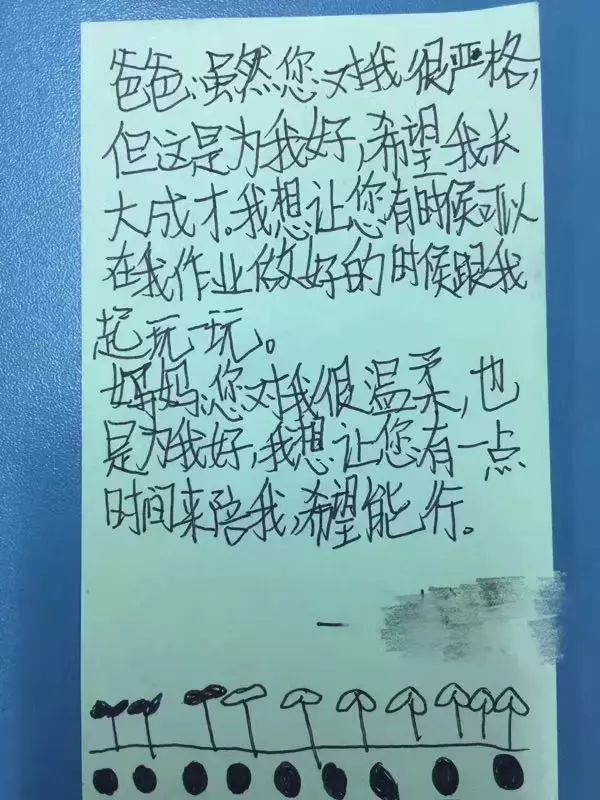 爸爸,虽然您对我很严格,
但这是为我好,希望我长
大成才。我想让您有时候可以
在我作业做好的时候跟我
起玩一玩。
妈妈,您对我很温柔,也
是为我好,我想让您有一点
时间来陪我,希望能行。